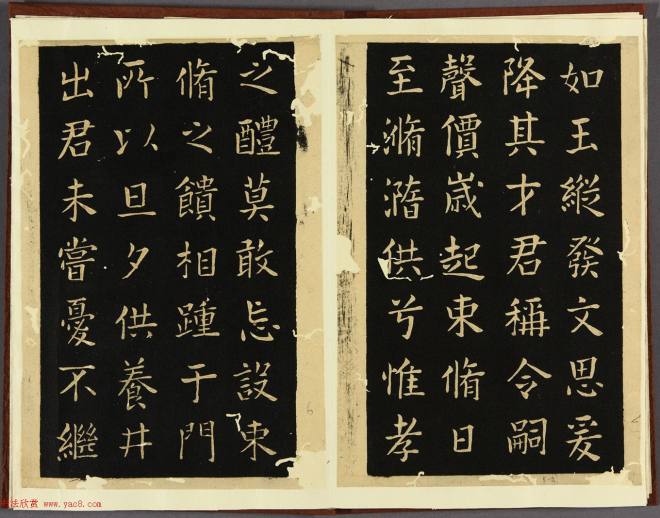 如王縱發文思爰
降其才君稱令嗣
聲價歲起束脩日
至滫瀡供兮惟孝
之醴莫敢忘設束
脩之饋相踵于門
所以旦夕供養井
出君未嘗憂不繼
www.yac8.com